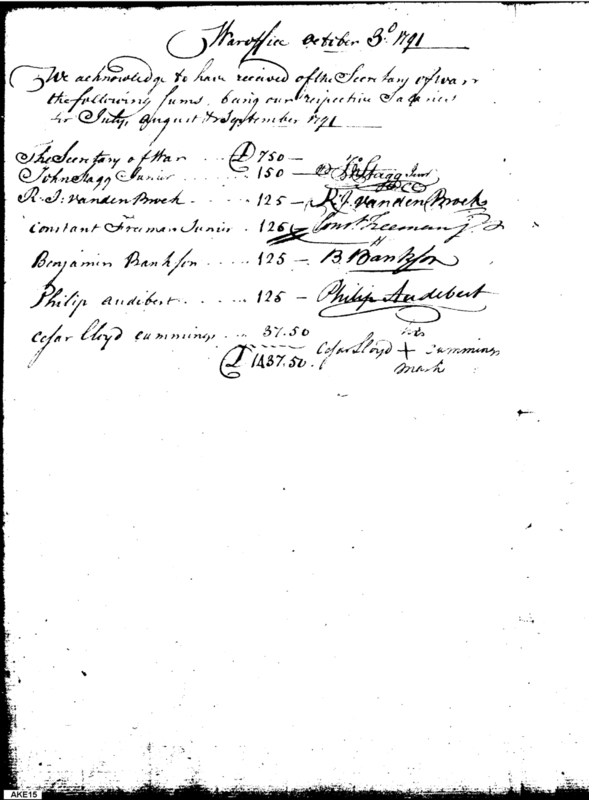 War office October 3d. 1791
We acknowledge to have received of the Secretary of war
the following sums, being our respective Salaries
for July, august & September 1791
The Secretary of War ... D 750 —
John Stagg Junior ..... 150 — Jno Stagg Junr
R. J. Vanden Broek .... 125 — R. J. Vanden Broek
Constant Freeman Junior . 125 — Const. Freeman Jr
Benjamin Bankson ..... 125 — B Bankson
Philip audibert ...... 125 — Philip Audibert
Cesar Lloyd Cummings ... 37.50 Cesar Lloyd his + mark Cummings
D 1437.50.
AKE15